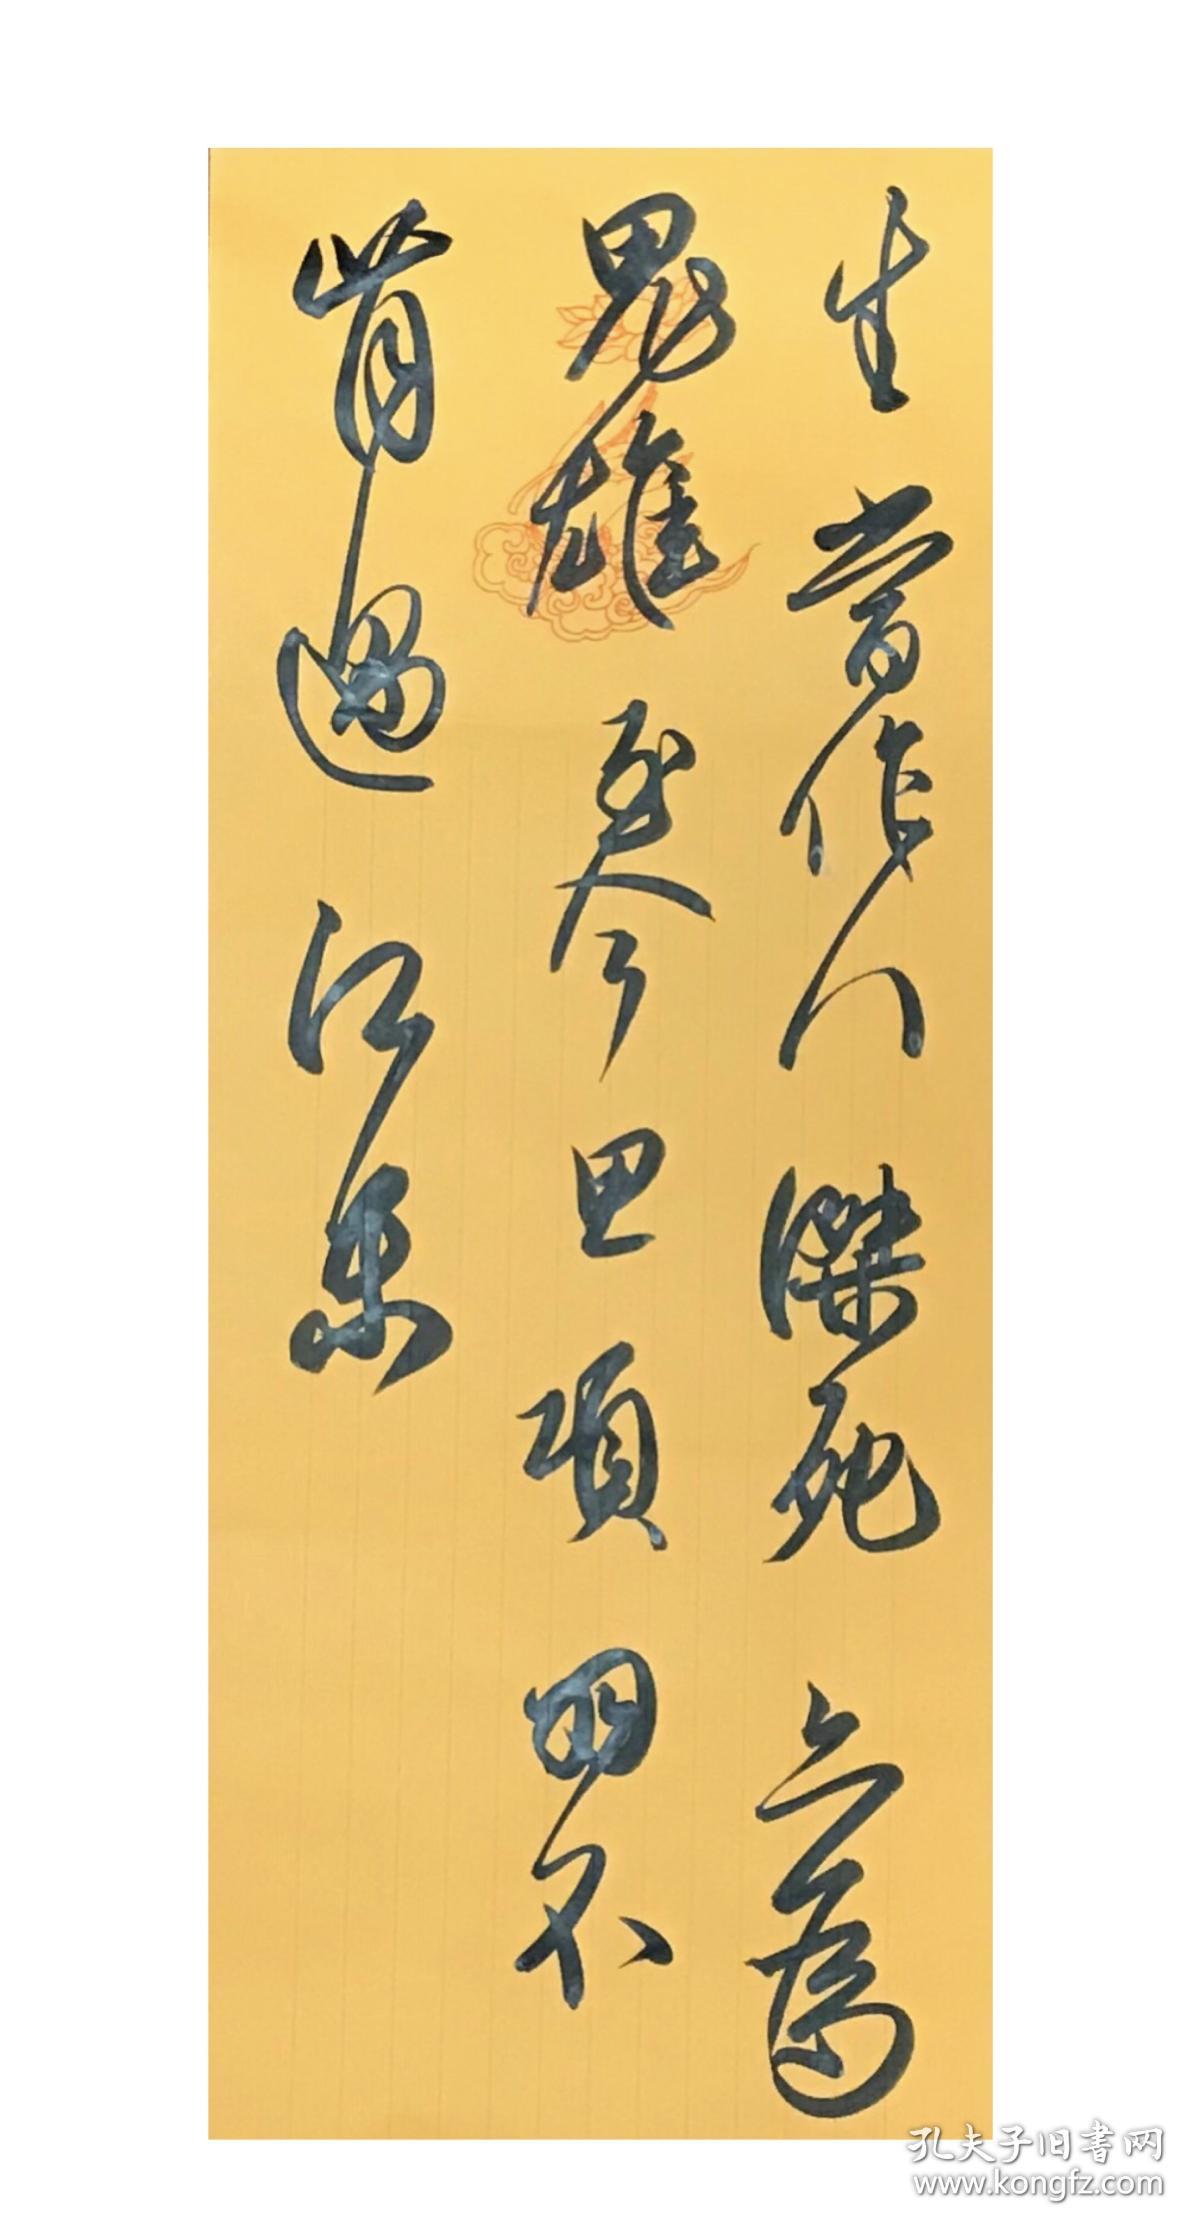 生當作人傑死亦為
鬼雄至今思項羽不
肯過江東
孔夫子旧書网
www.kongfz.com